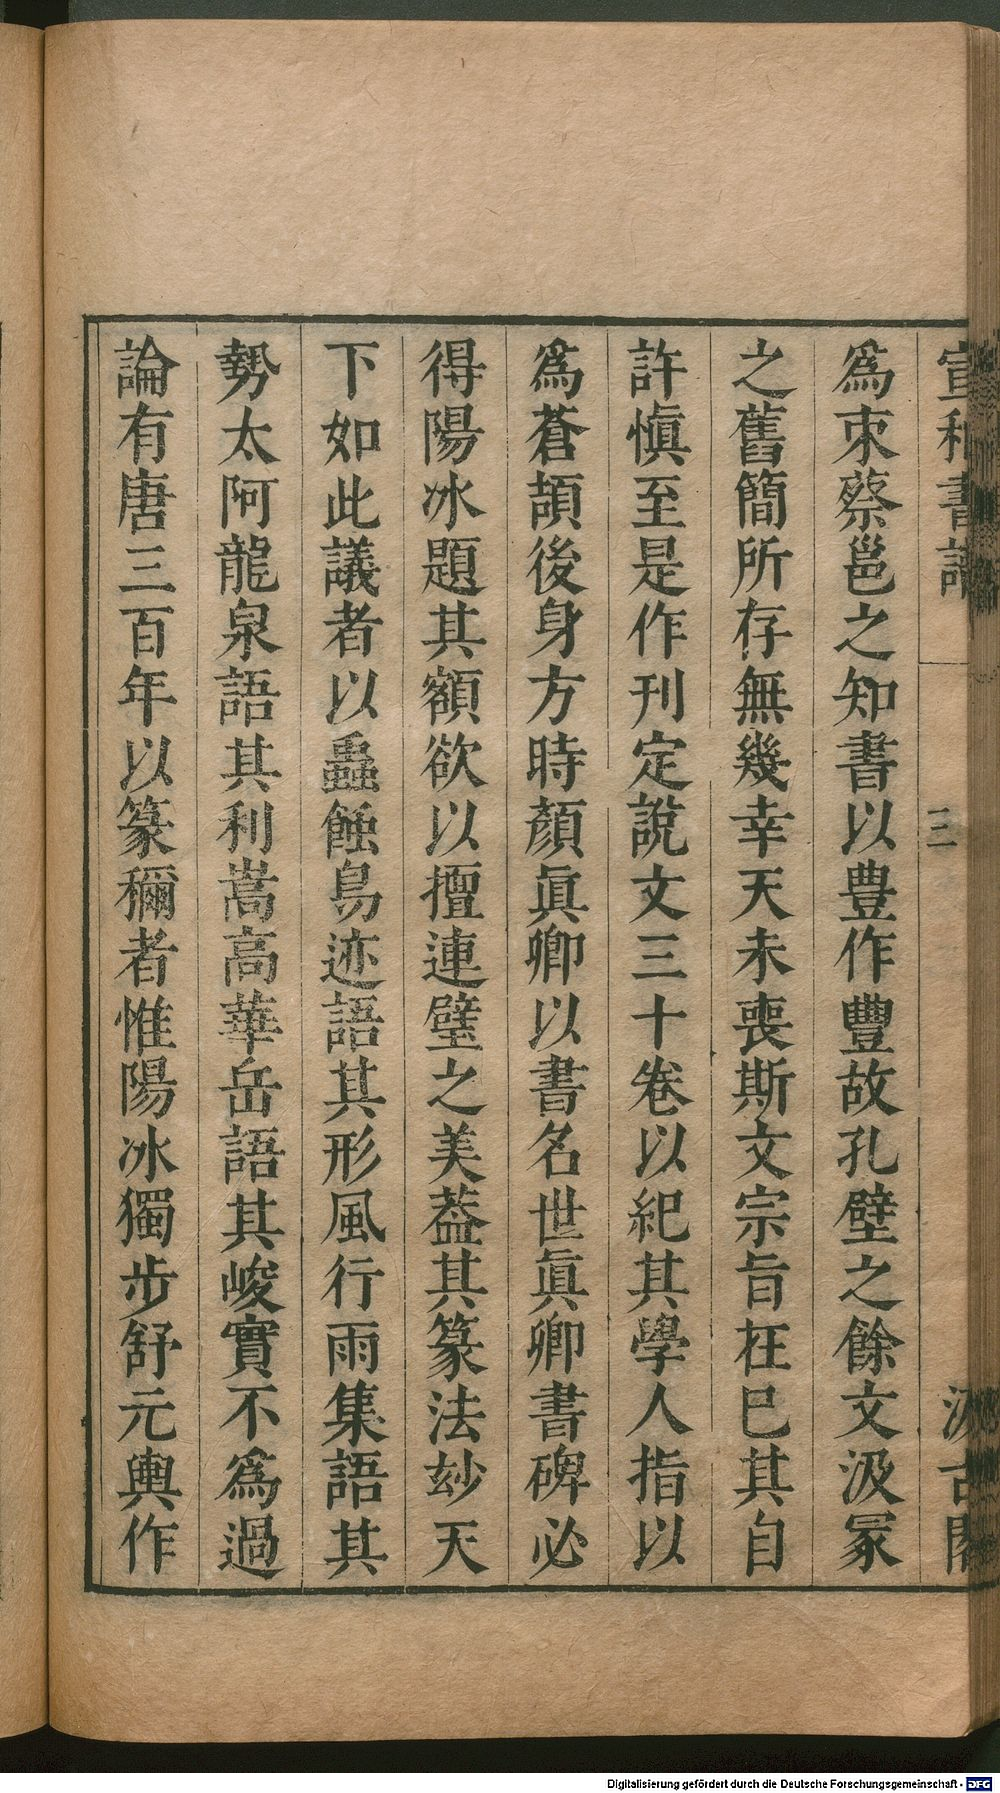 宣和書譜 三 汲古閣
為朿蔡邕之知書以豊作豐故孔壁之餘文汲冡
之舊簡所存無幾幸天未喪斯文宗旨在巳其自
許慎至是作刊定說文三十卷以紀其學人指以
為蒼頡後身方時顏眞卿以書名世眞卿書碑必
得陽冰題其額欲以擅連璧之美葢其篆法玅天
下如此議者以蟲蝕鳥迹語其形風行雨集語其
勢太阿龍泉語其利嵩高華岳語其峻實不為過
論有唐三百年以篆稱者惟陽冰獨步舒元輿作
Digitalisierung gefördert durch die Deutsche Forschungsgemeinschaft - DFG